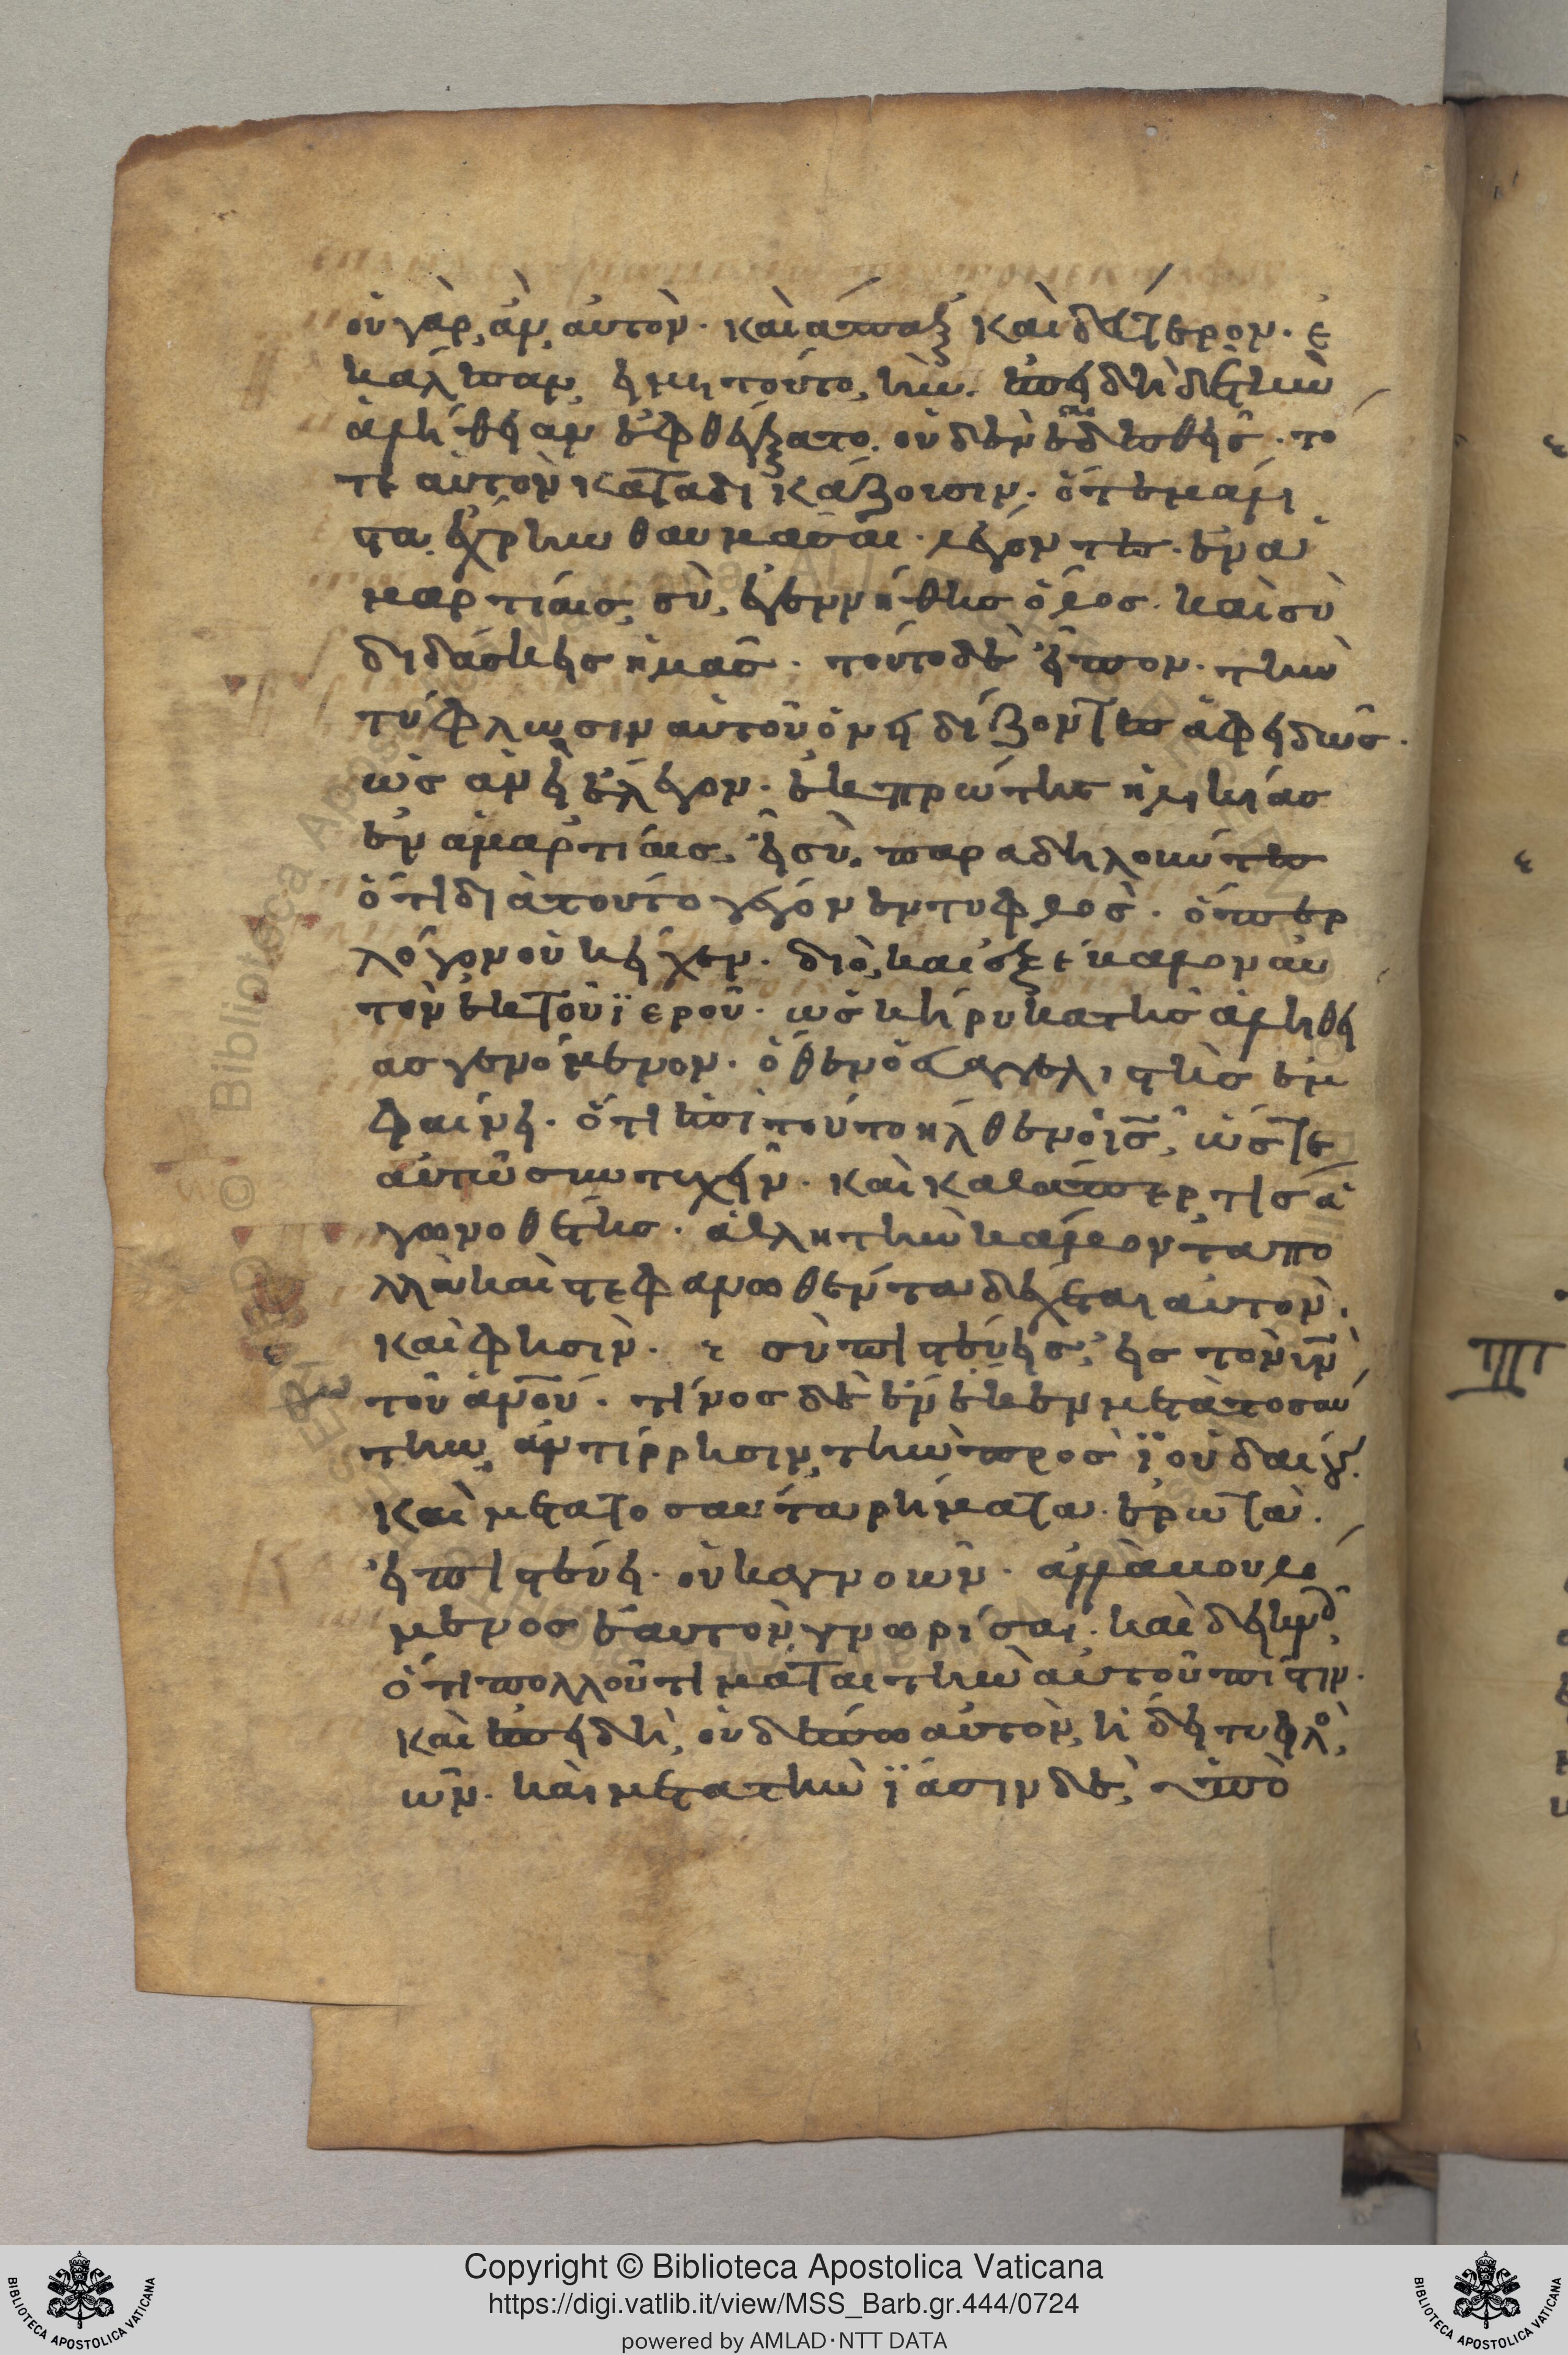 οὐ γὰρ, ἂν, αὐτὸν· καὶ ἅπαξ καὶ δεύτερον· ἐ
κάλεσαν, εἰ μὴ τοῦτο, ἦν. ἐπειδὴ δὲ τὴν
ἀλήθειαν ἐφθέγξατο. οὐδὲν αἰδεσθεὶς· τό
τε αὐτὸν καταδικάζουσιν· ὅτε μάλι
στα ἐχρῆν θαυμάσαι· λέγοντες· ἐν ἁ
μαρτίαις, σὺ, ἐγεννήθης ὅλος· καὶ σὺ
διδάσκεις ἡμᾶς· τοῦτο δὲ εἶπον· τὴν
τύφλωσιν αὐτοῦ ὀνειδίζοντες ἀφειδῶς·
ὡς ἂν εἰ ἔλεγον· ἐκ πρώτης ἡλικίας
ἐν ἁμαρτίαις, εἶ σὺ. παραδηλοῦντες
ὅτι διὰ τοῦτο γέγονεν τυφλὸς· ὅπερ
λόγον οὐκ εἶχεν· διὸ, καὶ ἐξέβαλον αὐ
τὸν ἐκ τοῦ ϊεροῦ· ὡς κήρυκα τῆς ἀληθεί
ας γενόμενον· ὅθεν ὁ εὐαγγελιστὴς ἐμ
φαίνει· ὅτι ἐπὶ τούτο ἦλθεν ὁ ις̅, ὥστε
αὐτῶ συντυχεῖν· καὶ καθάπερ τὶς ἀ
γωνοθέτης· ἀθλητὴν καμόντα πο
λλὰ καὶ στεφανωθέντα δέχεται αὐτὸν·
καὶ φησὶν· σὺ πιστεύεις, εἰς τὸν υν̅
τοῦ ἀνο̅υ· τίνος δὲ ἕνεκεν μετὰ τοσαύ
την, ἀντίρρησιν, τὴν πρὸς ϊουδαίους.
καὶ μετὰ τοσαῦτα ῥήματα· ἐρωτᾶ.
εἰ πιστεύει· οὐκ ἀγνοῶν· ἀλλὰ βουλό
μενος ἑαυτὸν γνωρίσαι· καὶ δεικνὺς,
ὅτι πολλοῦ τιμᾶται τὴν αὐτοῦ πίστιν·
καὶ ἐπειδὴ, οὐδέπω αὐτὸν, ἤδει τυφλὸς,
ὢν· καὶ μετὰ τὴν ϊάσιν δὲ, ὑπὸ
Copyright © Biblioteca Apostolica Vaticana
https://digi.vatlib.it/view/MSS_Barb.gr.444/0724
powered by AMLAD·NTT DATA
BIBLIOTECA APOSTOLICA VATICANA
BIBLIOTECA APOSTOLICA VATICANA